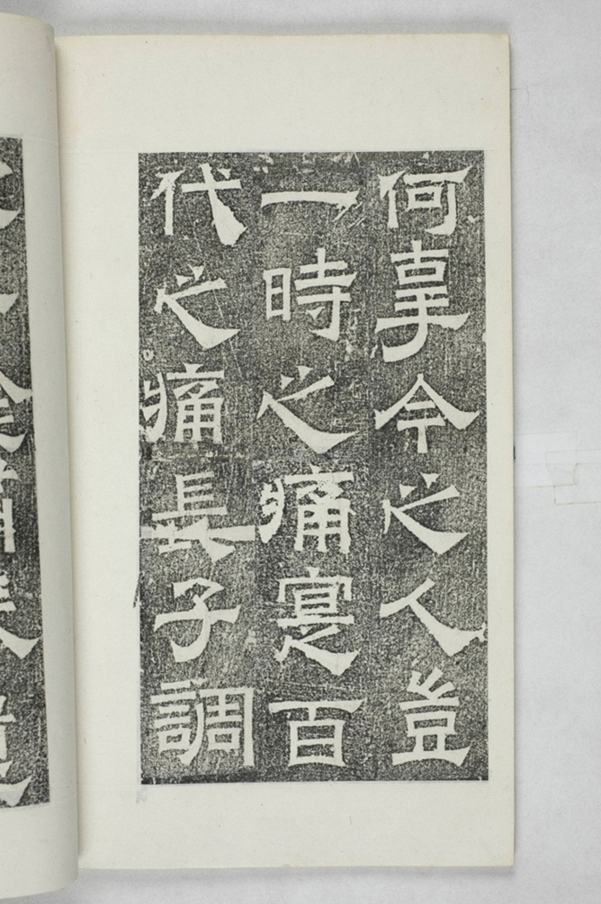 何辜今之人豈
一時之痛寔百
代之痛長子調